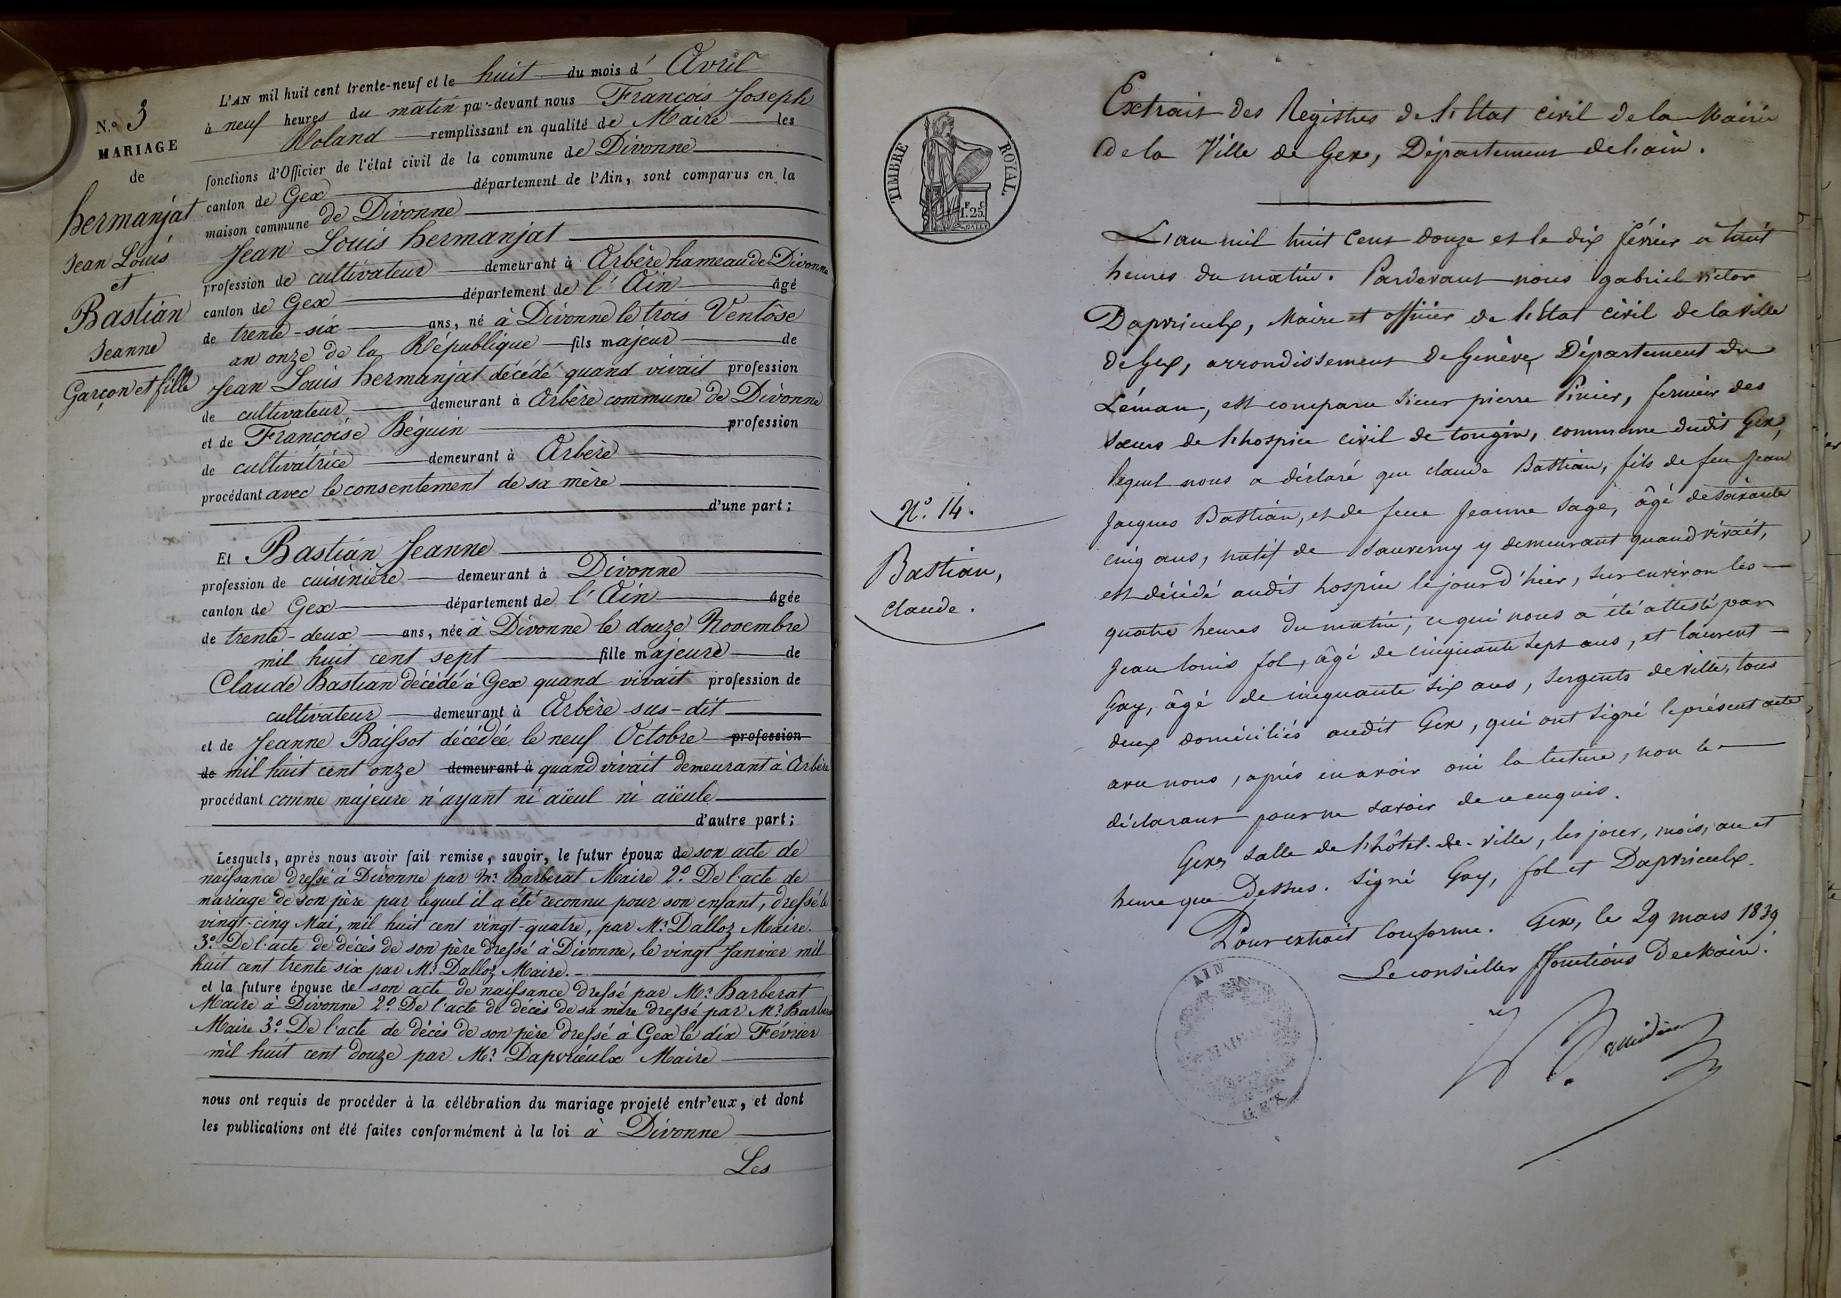 N.° 3
MARIAGE
de
hermanjat
Jean Louis
et
Bastian
Jeanne
Garçon et fille
L'AN mil huit cent trente-neuf et le huit du mois d' Avril
à neuf heures du matin par-devant nous François Joseph
Roland remplissant en qualité de Maire les
fonctions d'Officier de l'état civil de la commune de Divonne
canton de Gex département de l'Ain, sont comparus en la
maison commune de Divonne
Jean Louis hermanjat
profession de cultivateur demeurant à Arbère hameau de Divonne
canton de Gex département de l'Ain âgé
de trente-six ans, né à Divonne le trois Ventôse
an onze de la République fils majeur de
Jean Louis hermanjat décédé quand vivait profession
de cultivateur demeurant à Arbère commune de Divonne
et de Françoise Béguin profession
de cultivatrice demeurant à Arbère
procédant avec le consentement de sa mère
d'une part;
Et Bastian Jeanne
profession de cuisinière demeurant à Divonne
canton de Gex département de l'Ain âgée
de trente-deux ans, née à Divonne le douze Novembre
mil huit cent sept fille majeure de
Claude Bastian décédé à Gex quand vivait profession de
cultivateur demeurant à Arbère sus-dit
et de Jeanne Baissot décédée le neuf Octobre profession
de mil huit cent onze demeurant à quand vivait demeurant à Arbère
procédant comme majeure n'ayant ni aïeul ni aïeule
d'autre part;
Lesquels, après nous avoir fait remise, savoir, le futur époux de son acte de
naissance dressé à Divonne par Mr. Barberat Maire 2.° De l'acte de
mariage de son père par lequel il a été reconnu pour son enfant, dressé le
vingt-cinq Mai, mil huit cent vingt-quatre, par Mr. Dalloz Maire.
3.° De l'acte de décès de son père dressé à Divonne, le vingt Janvier mil
huit cent trente six par Mr. Dalloz Maire.
et la future épouse de son acte de naissance dressé par Mr. Barberat
Maire à Divonne 2.° De l'acte de décès de sa mère dressé par Mr. Barbera
Maire 3.° De l'acte de décès de son père dressé à Gex le dix Février
mil huit cent douze par Mr. Dapvrieulx Maire
nous ont requis de procéder à la célébration du mariage projeté entr'eux, et dont
les publications ont été faites conformément à la loi à Divonne
Les
TIMBRE ROYAL
1.25
N.° 14.
Bastian,
claude.
Extrait des Registres de l'Etat civil de la Mairie
de la Ville de Gex, Département de l'ain.
L'an mil huit cent douze et le dix février à huit
heures du matin. Pardevant nous gabriel victor
Dapvrieulx, Maire et officier de l'Etat civil de la ville
de Gex, arrondissement de Genève, Département du
Léman, est comparu sieur pierre Pinier, fermier des
sœurs de l'hospice civil de tougin, commune dudit Gex,
lequel nous a déclaré que claude Bastian, fils de feu Jean
Jacques Bastian, et de feue Jeanne Sage, âgé de soixante
cinq ans, natif de Sauverny y demeurant quand vivait,
est décédé audit hospice le jour d'hier, sur environ les
quatre heures du matin; ce qui nous a été attesté par
Jean louis fol, âgé de cinquante sept ans, et laurent
Gay, âgé de cinquante six ans, sergents de ville, tous
deux domiciliés audit Gex, qui ont signé le présent acte
avec nous, après en avoir oui la lecture, non le
déclarant pour ne savoir de ce enquis.
Gex, salle de l'hôtel-de-ville, les jour, mois, an et
heure que dessus. Signé Gay, fol et Dapvrieulx.
Pour extrait Conforme. Gex, le 29 mars 1839
Le conseiller ffonctions De Maire.
AIN
MAIRIE
GEX